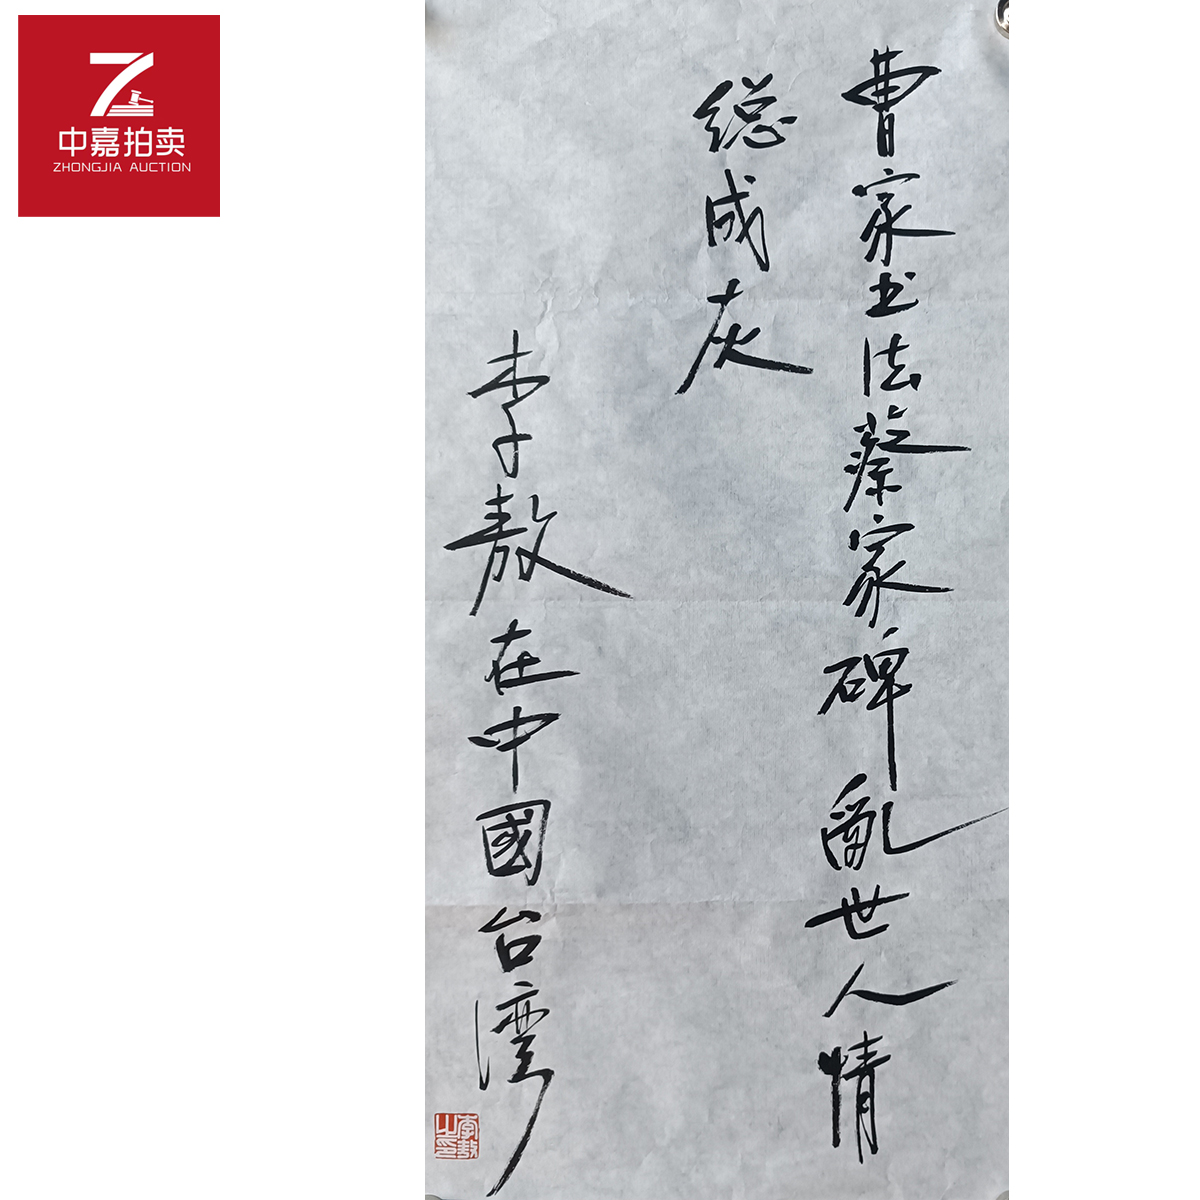 中嘉拍卖
ZHONGJIA AUCTION
曹家书法蔡家碑乱世人情
総成灰
李敖在中國台湾
李敖之印